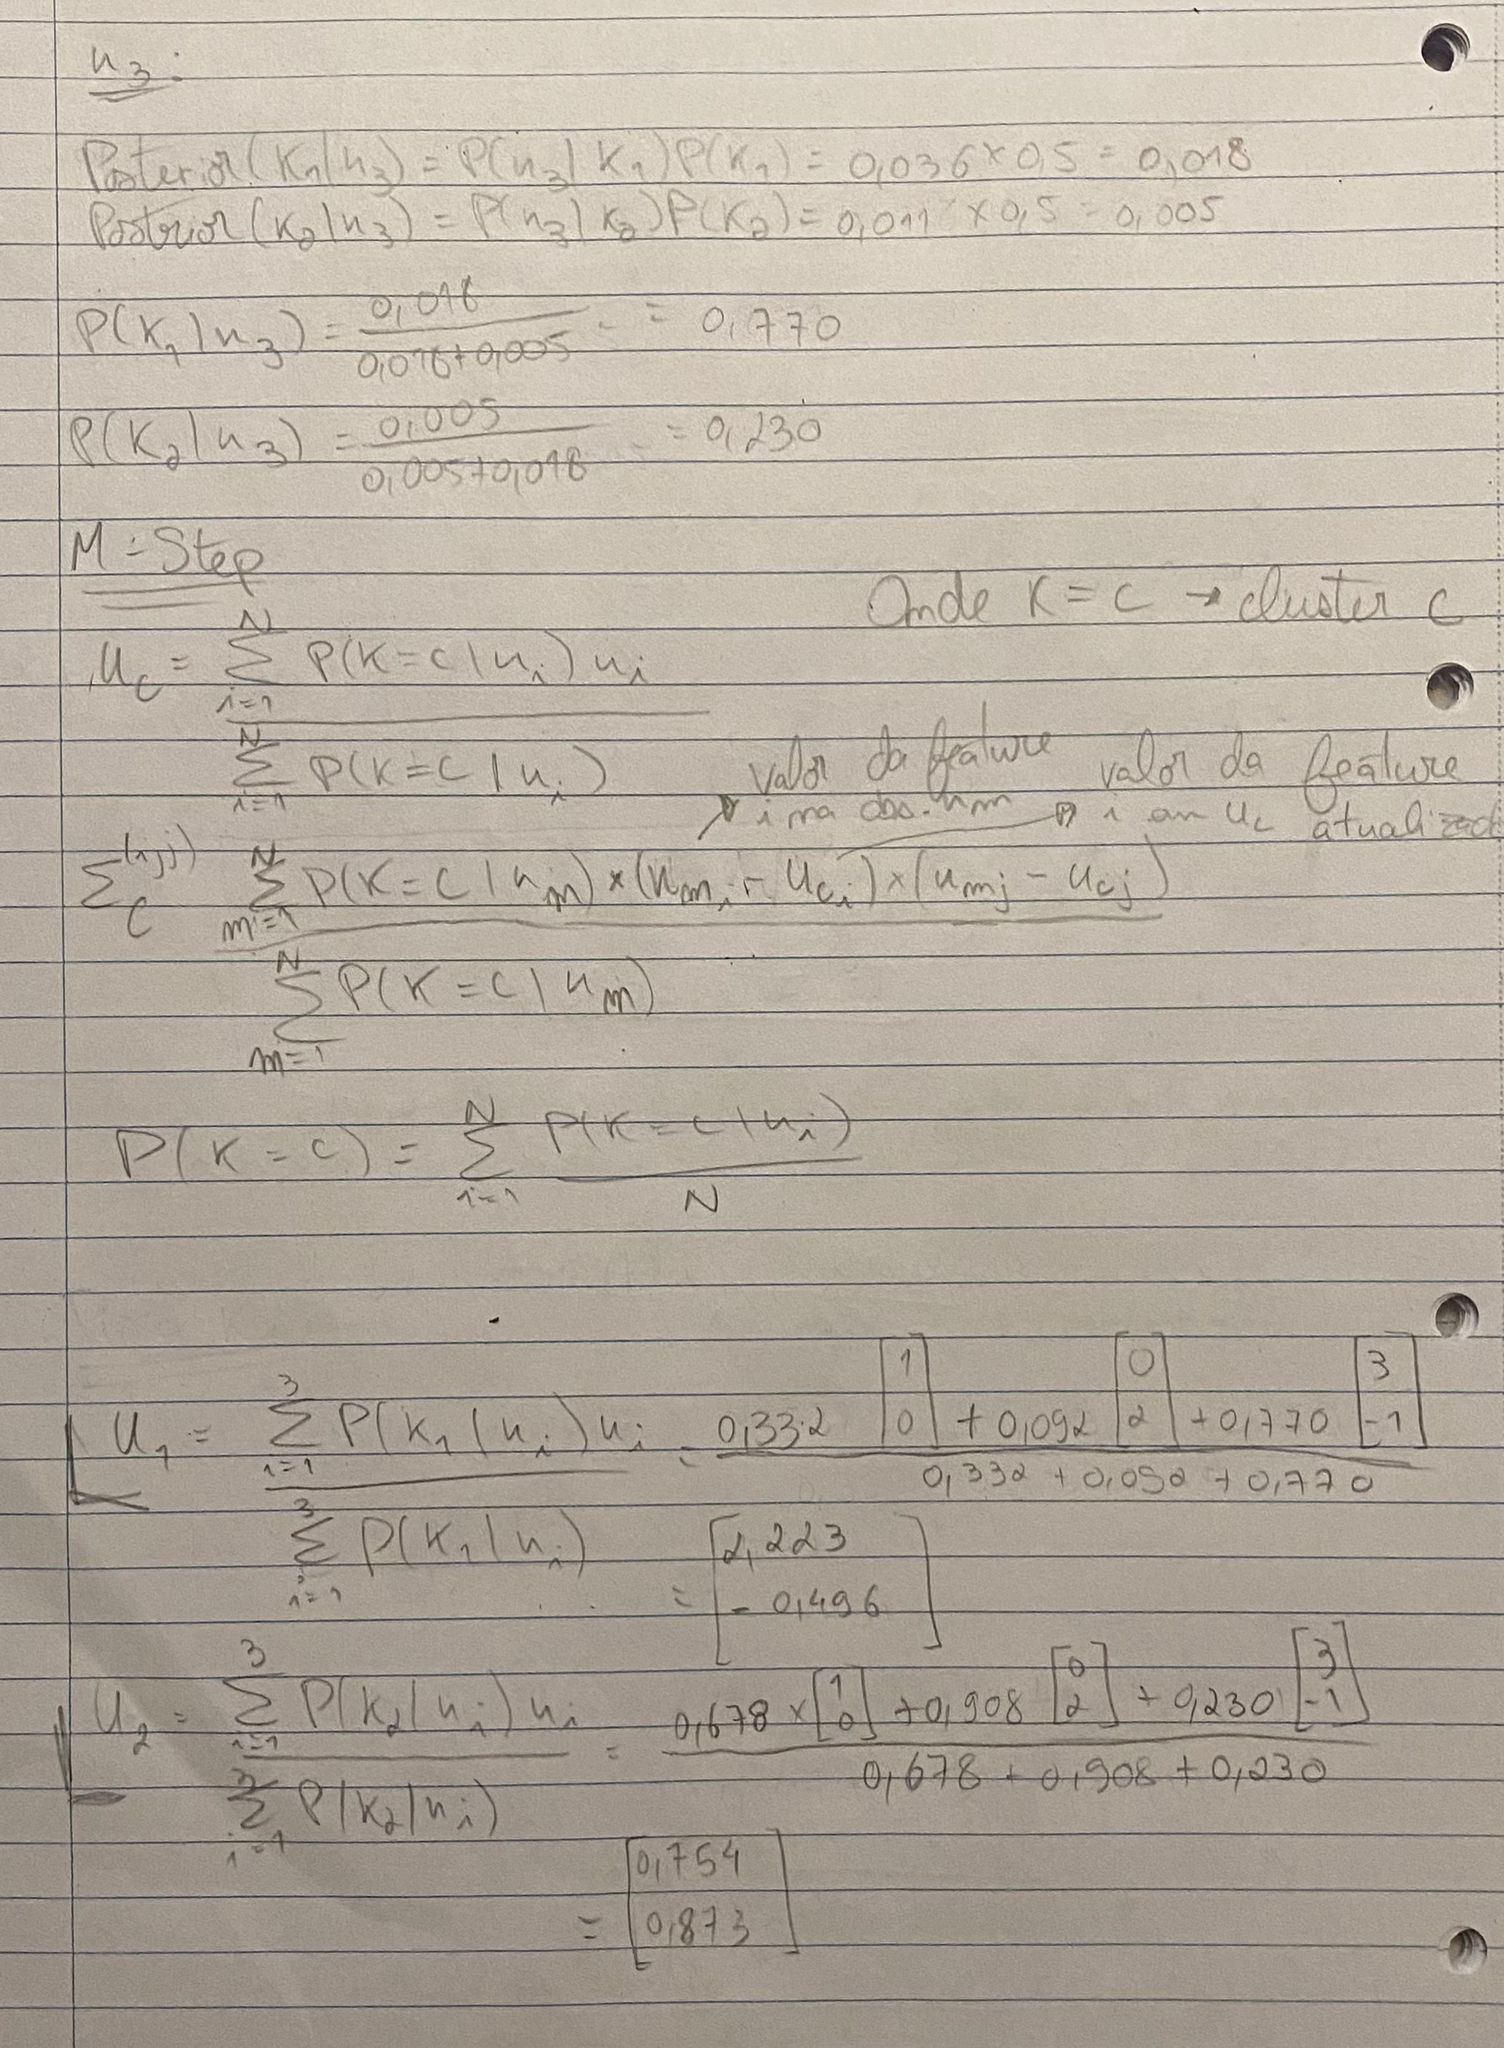 u₃:
Posterior(K₁|u₃) = P(u₃|K₁)P(K₁) = 0,036 × 0,5 = 0,018
Postrior(K₂|u₃) = P(u₃|K₂)P(K₂) = 0,011 × 0,5 = 0,005
P(K₁|u₃) = 0,018 / 0,018+0,005 = = 0,770
P(K₂|u₃) = 0,005 / 0,005+0,018 = = 0,230
M-Step
Onde K = C → cluster C
u_C = Σ_{i=1}^{N} P(K=C|u_i) u_i / Σ_{i=1}^{N} P(K=C|u_i)
valor da feature i na obs. um
valor da feature i em u_c
Σ_C^{(i,j)} Σ_{m=1}^{N} P(K=C|u_m) × (u_{mi} - u_{ci}) × (u_{mj} - u_{cj}) / Σ_{m=1}^{N} P(K=C|u_m)
P(K=C) = Σ_{i=1}^{N} P(K=C|u_i) / N
u₁ = Σ_{i=1}^{3} P(K₁|u_i) u_i / Σ_{i=1}^{3} P(K₁|u_i) = 0,332 [1 0] + 0,092 [0 2] + 0,770 [3 -1] / 0,332 + 0,092 + 0,770
= [2,223 -0,496]
u₂ = Σ_{i=1}^{3} P(K₂|u_i) u_i / Σ_{i=1}^{3} P(K₂|u_i) = 0,678 × [1 0] + 0,908 [0 2] + 0,230 [3 -1] / 0,678 + 0,908 + 0,230
= [0,754 0,873]